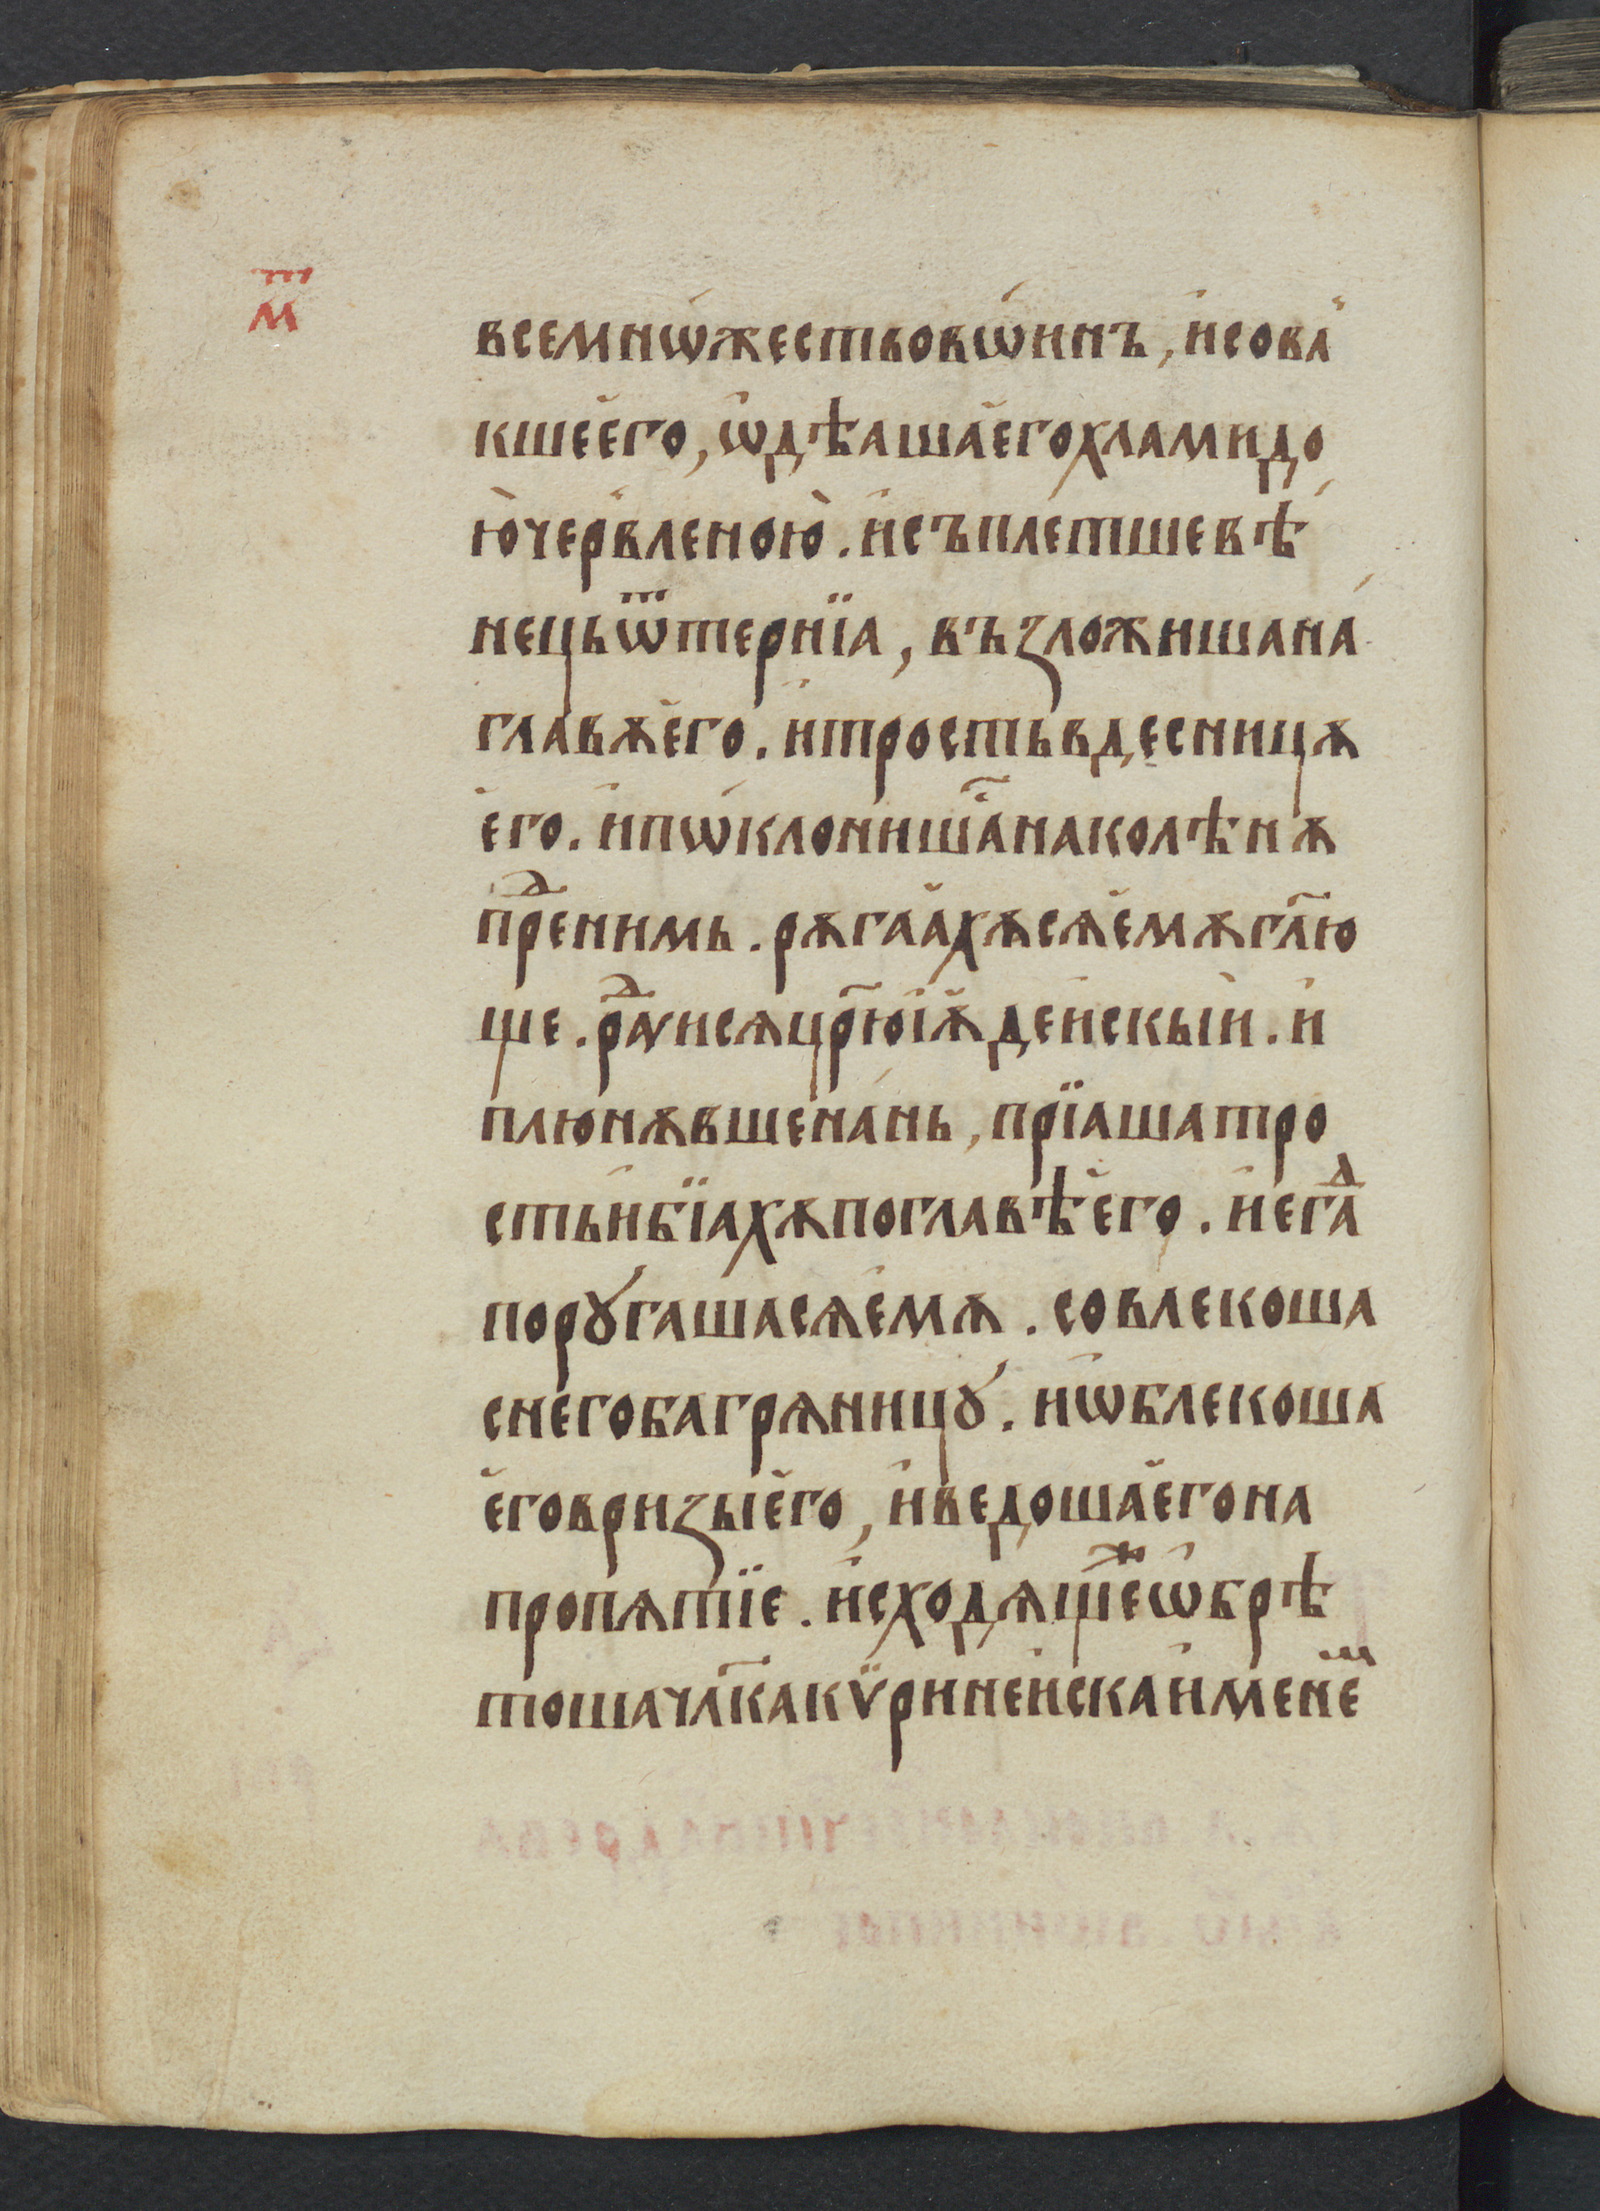 м҃т
всемнѡ́жествовѡ́инъ, исовл
кшеего, ѡдѣашаего хламидо
ючервленою. исъплетшевѣ
нецьѿтернїа, възложишана
главѫего. итростьвдесницѫ
его. ипѡклонишанаколѣнѫ
прⷣенимь. рѫгаахѫсѧемѫгл҃ю
ще. раⷣуисѧцр҃юіѫдеискыи. и
плюнѫвшенань, прїашатро
стьибїахѫпоглавѣего. иегаⷣ
порꙋгашасѧемѫ. совлекоша
снегобагрѧницꙋ. иѡблекоша
еговризыего, иведошаегона
пропѧтїе. исходѧщежеѡбрѣ
тошачл҃какѵринеискаименеⷨ